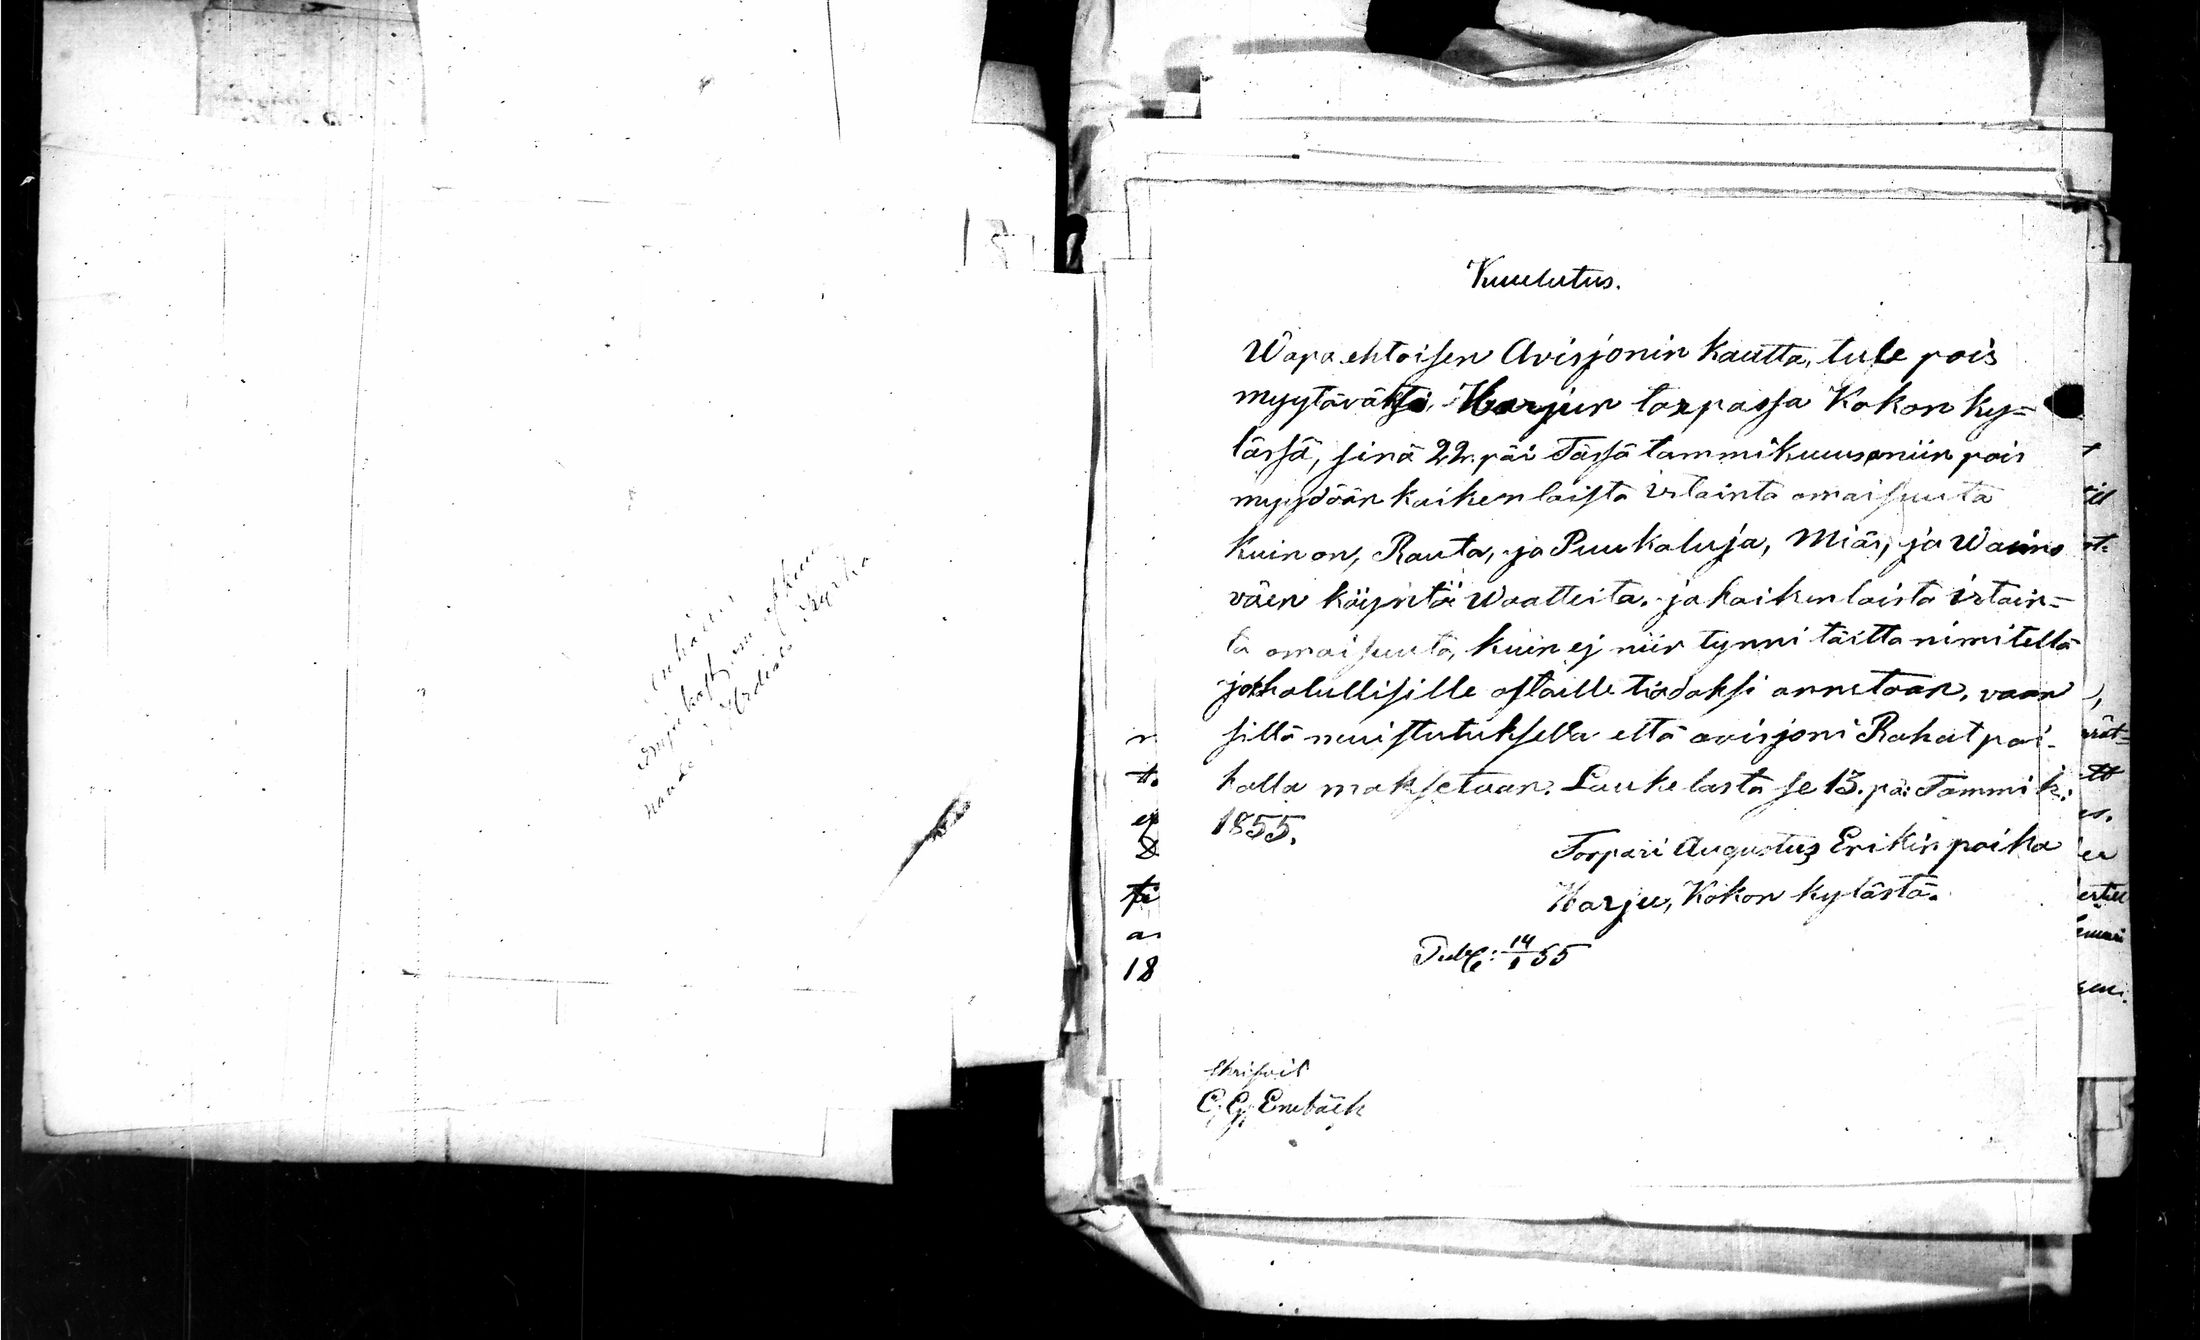 Kuulutus.
Wapa ehtoisen Avisjonin kautta, tule pois
myytäväksi, Harjun torpassa Kokon ky=
lässä, sinä 22. päi Tässä tammikuusa niin pois
myydään kaikenlaista irtainta omaisuuta
kuin on, Rauta, ja Puukaluja, Miäs, ja Waimo
väen käyntä Waatteita. ja kaikenlaista irtain=
ta omaisuuta, kuin ej niin tynni täittä nimitellä
jokhalullisille ostaille tiädoksi annetaan, vaan
sillä muistutuksella että avisjoni Rahat pai-
kalla maksetaan. Laukelasta se 13. päi Tammik:
1855.
Torpari Augustus Erikin poika
Harju, Kokon kylästä.
Publ: 14/1 55
Skrifvit
C, G, Enebäck